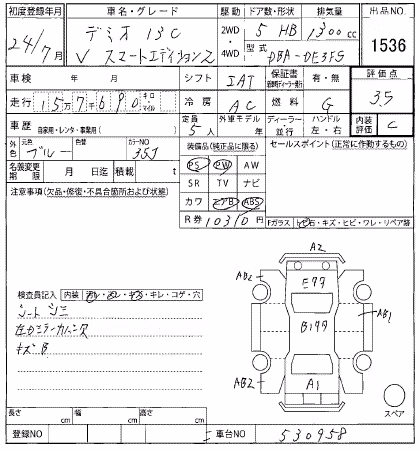 初度登録年月 車名・グレード 駆動 ドア数・形状 排気量 出品NO
24/7月 デミオ 13C 2WD 5 HB 1300cc 1536
V スマートエディション2 4WD 型式 DBA-DE3FS
車検 年 月 シフト IAT 保証書 有・無 評価点
走行 15万7千690 キロ マイル 冷房 AC 燃料 G 3.5
車歴 自家用・レンタ・事業用( ) 定員 5人 外車モデル 年 ディーラー・並行 ハンドル 左・右 内装評価 C
外色 元色 ブルー 色替 カラーNO 35J 装備品(純正品に限る) セールスポイント(正常に作動するもの)
名義変更期限 月 日迄 積載 t PS PW AW
注意事項(欠品・修復・不具合箇所および状態) SR TV ナビ
カワ エアB ABS
R券 10310円 Fガラス 石・キズ・ヒビ・ワレ・リペア跡
A2
AB2 Eクク
AB1
Blクク
AB2 A1
検査員記入 内装 キレ・コゲ・穴
シート シミ
左ドアミラーカバー欠
キズ B
スペア
長さ cm 幅 cm 高さ cm
登録NO 車台NO 530958